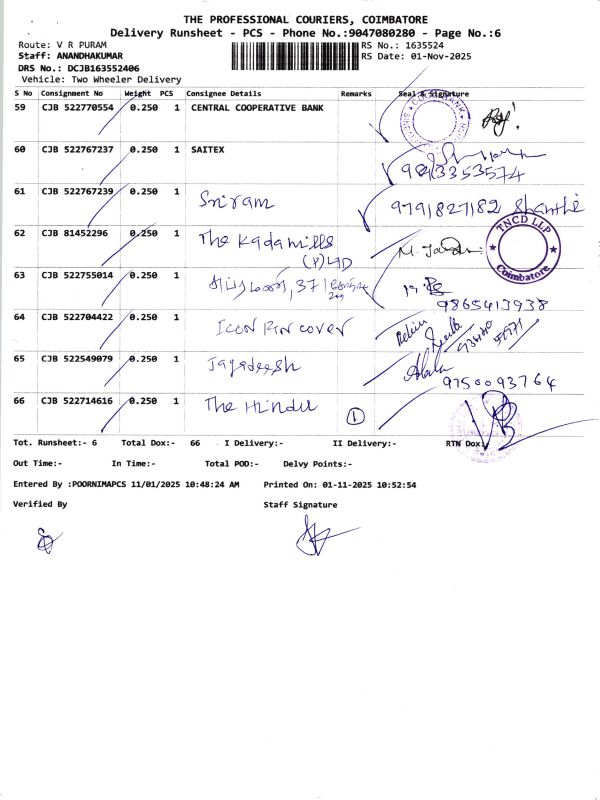 THE PROFESSIONAL COURIERS, COIMBATORE
Delivery Runsheet - PCS - Phone No.:9047080280 - Page No.:6
Route: V R PURAM
RS No.: 1635524
Staff: ANANDHAKUMAR
RS Date: 01-Nov-2025
DRS No.: DCJB163552406
Vehicle: Two Wheeler Delivery
S No Consignment No Weight PCS Consignee Details Remarks Seal & Signature
59 CJB 522770554 0.250 1 CENTRAL COOPERATIVE BANK
60 CJB 522767237 0.250 1 SAITEX
9843353574
61 CJB 522767239 0.250 1 Sriram 9791827182 Shanthi
62 CJB 81452296 0.250 1 The Kadamills
(P) LTD
TNCD LLP
Coimbatore
63 CJB 522755014 0.250 1
9865413938
64 CJB 522704422 0.250 1 ICON PIN COVER
65 CJB 522549079 0.250 1 Jagadeesh
9750093764
66 CJB 522714616 0.250 1 The Hindu 1
Tot. Runsheet:- 6 Total Dox:- 66 I Delivery:- II Delivery:- RTN Dox:
Out Time:- In Time:- Total POD:- Delvy Points:-
Entered By :POORNIMAPCS 11/01/2025 10:48:24 AM Printed On: 01-11-2025 10:52:54
Verified By Staff Signature